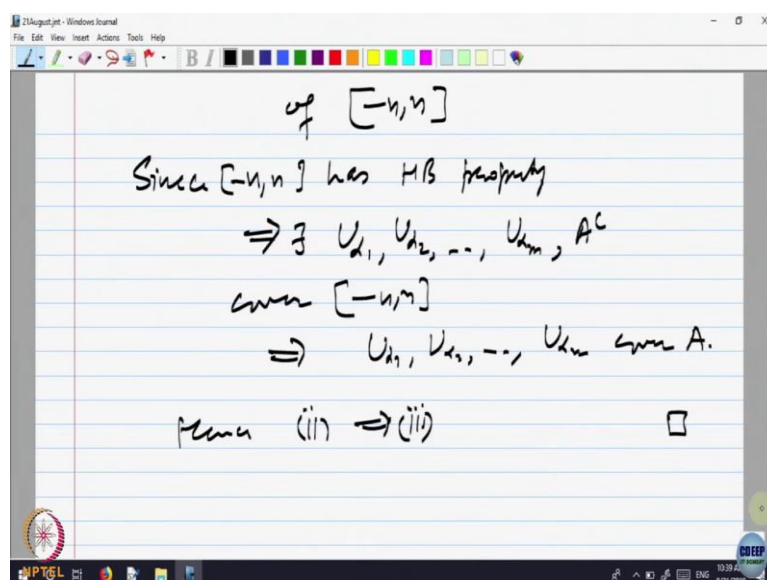 21August.jnt - Windows Journal
File Edit View Insert Actions Tools Help
B I
of [-n,n]
Since [-n,n] has HB property
⇒ ∃ Uα₁, Uα₂, ..., Uαₘ, Aᶜ
cover [-n,n]
⇒ Uα₁, Uα₂, ..., Uαₘ cover A.
Hence (ii) ⇒ (iii) □
NPTEL
CDEEP
IIT BOMBAY
ENG 10:39